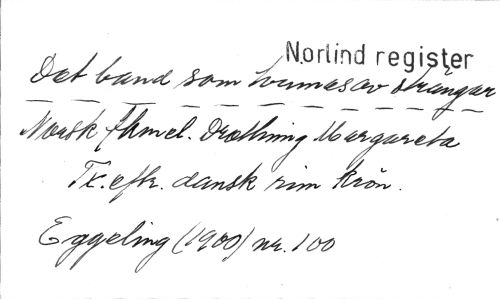 Norlind register
Det band som tvinnas av strängar
Norsk fkmel. Drottning Margareta
Tx. eft. dansk rim krön.
Eggeling (1900) nr. 100